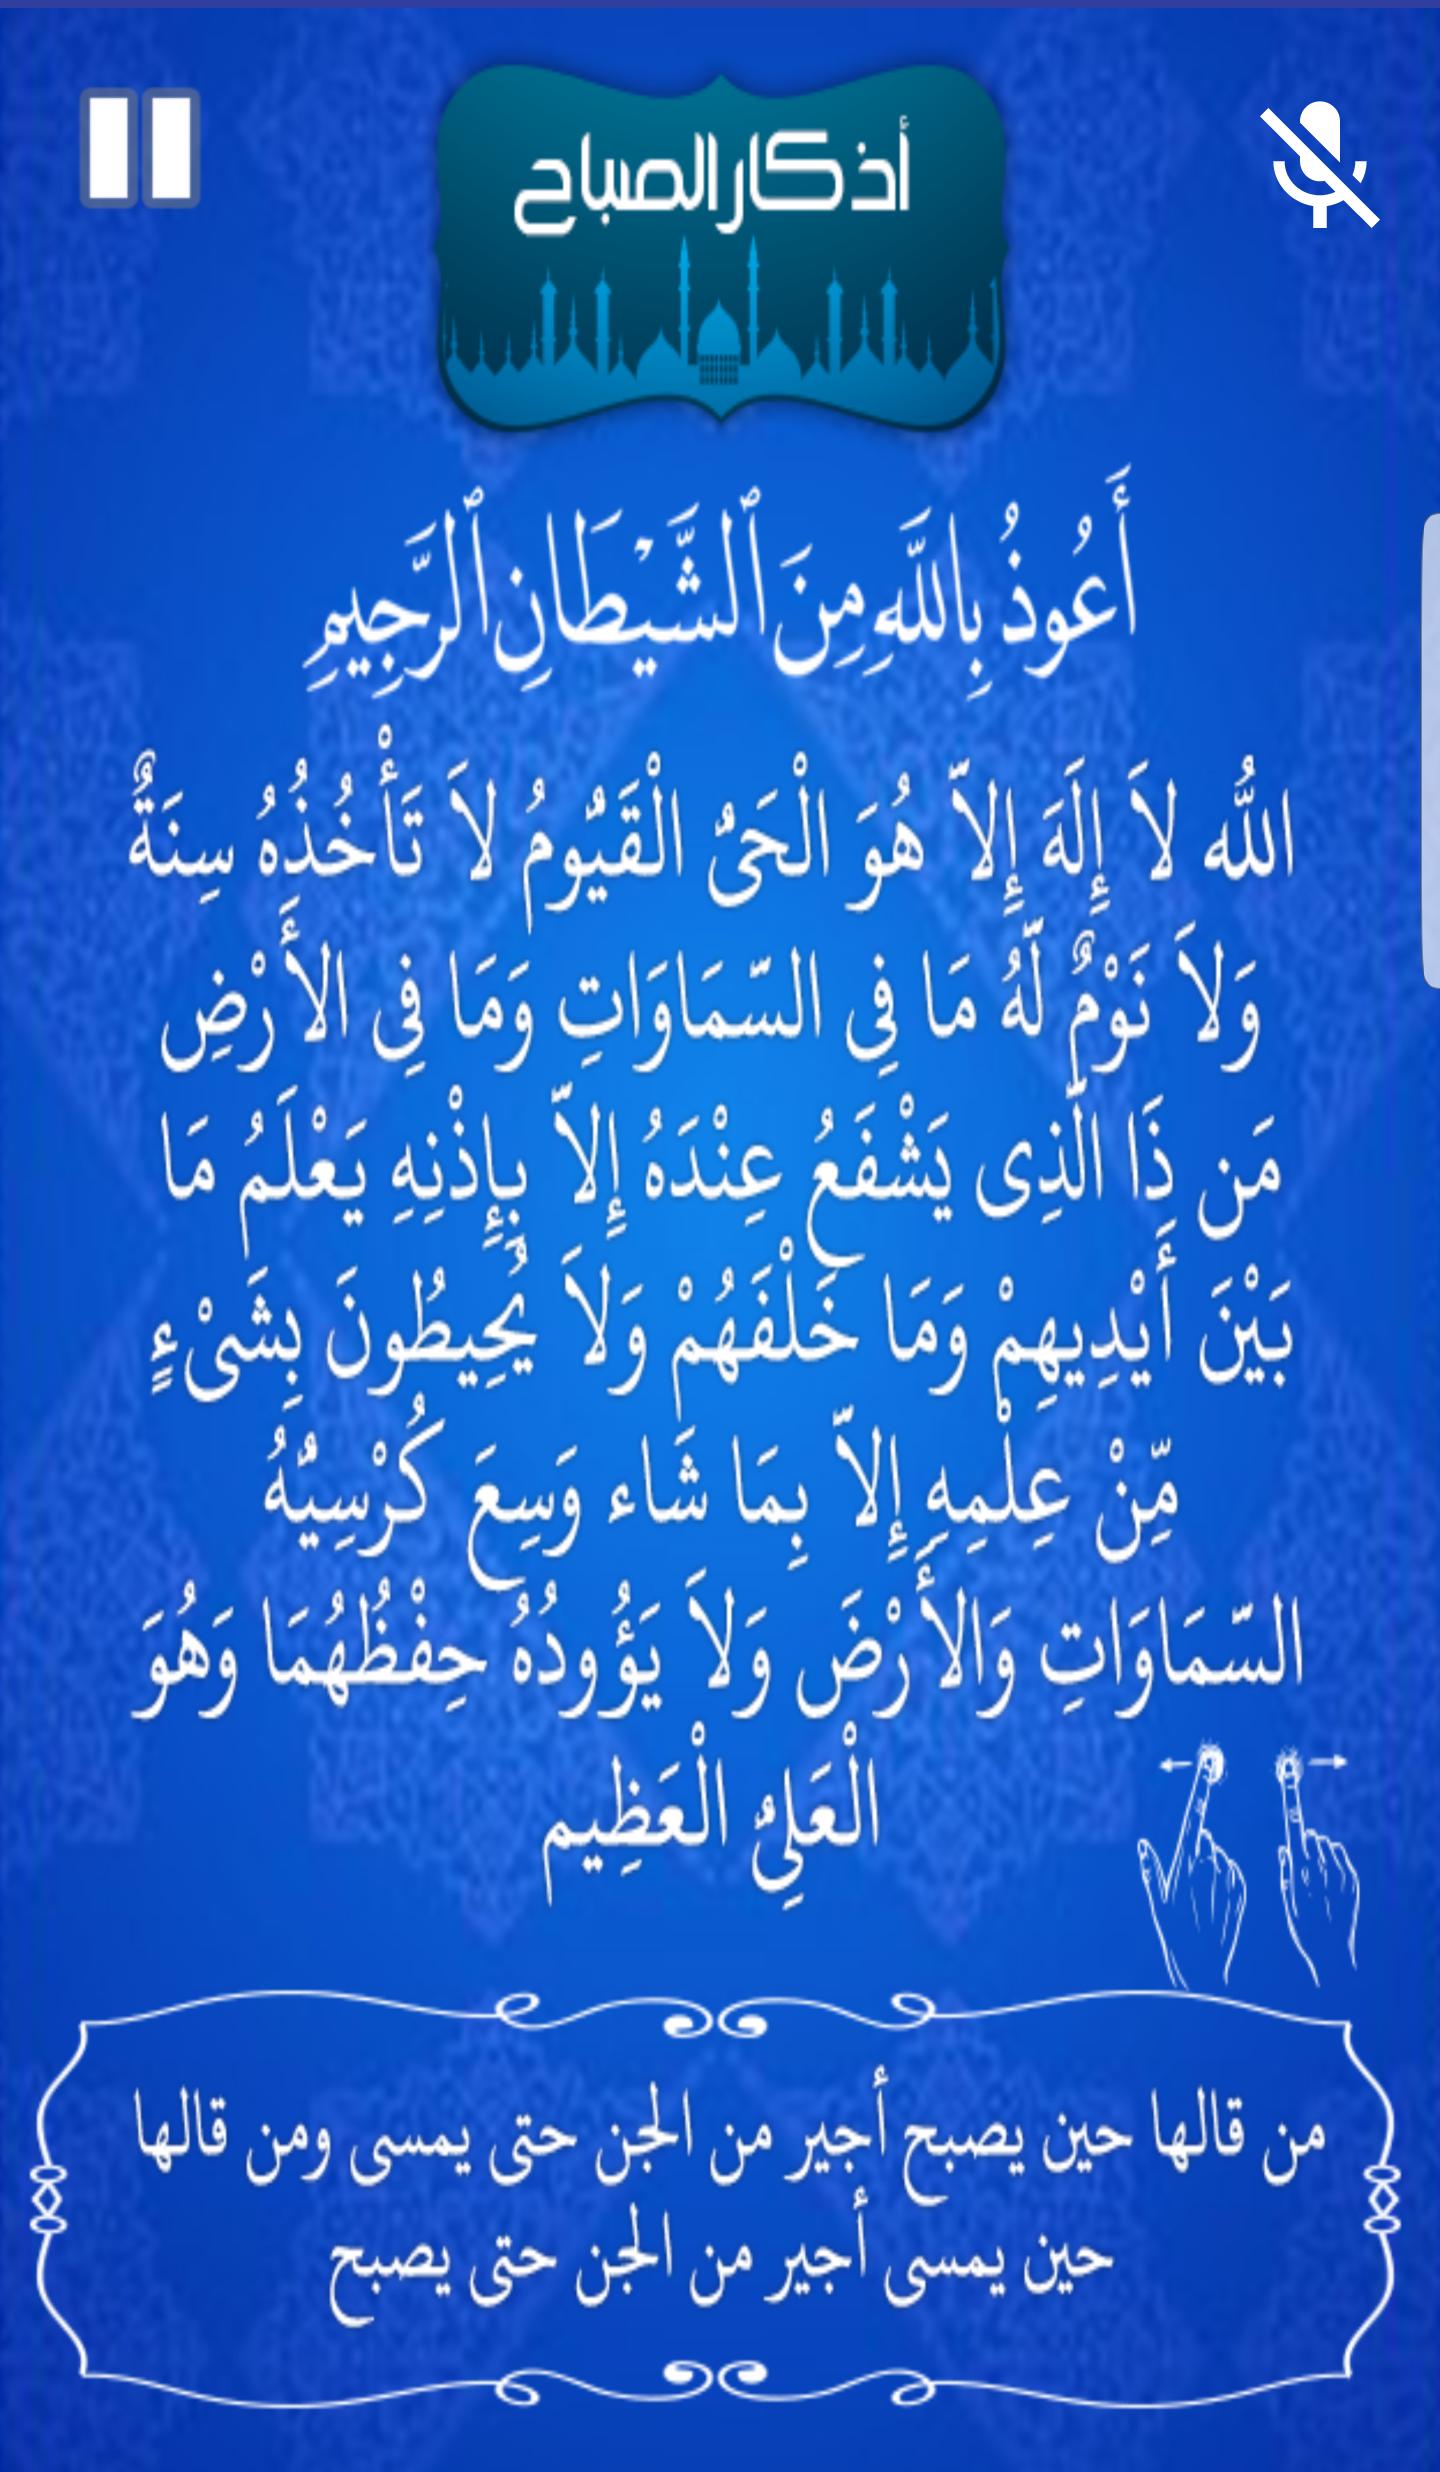 أذكار الصباح
أَعُوذُ بِاللَّهِ مِنَ ٱلشَّيْطَانِ ٱلرَّجِيمِ
اللّهُ لاَ إِلَهَ إِلاَّ هُوَ الْحَيُّ الْقَيُّومُ لاَ تَأْخُذُهُ سِنَةٌ
وَلاَ نَوْمٌ لَّهُ مَا فِي السَّمَاوَاتِ وَمَا فِي الأَرْضِ
مَن ذَا الَّذِي يَشْفَعُ عِنْدَهُ إِلاَّ بِإِذْنِهِ يَعْلَمُ مَا
بَيْنَ أَيْدِيهِمْ وَمَا خَلْفَهُمْ وَلاَ يُحِيطُونَ بِشَيْءٍ
مِّنْ عِلْمِهِ إِلاَّ بِمَا شَاء وَسِعَ كُرْسِيُّهُ
السَّمَاوَاتِ وَالأَرْضَ وَلاَ يَؤُودُهُ حِفْظُهُمَا وَهُوَ
الْعَلِيُّ الْعَظِيم
من قالها حين يصبح أجير من الجن حتى يمسى ومن قالها
حين يمسى أجير من الجن حتى يصبح